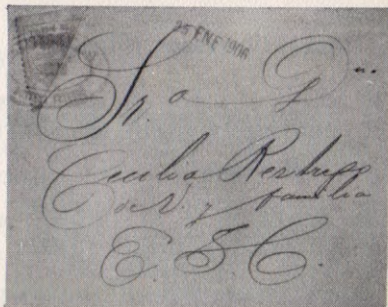 25 ENE 1906
Sr.a D.
Cecilia Restrepo
de V. y familia
E. S. C.